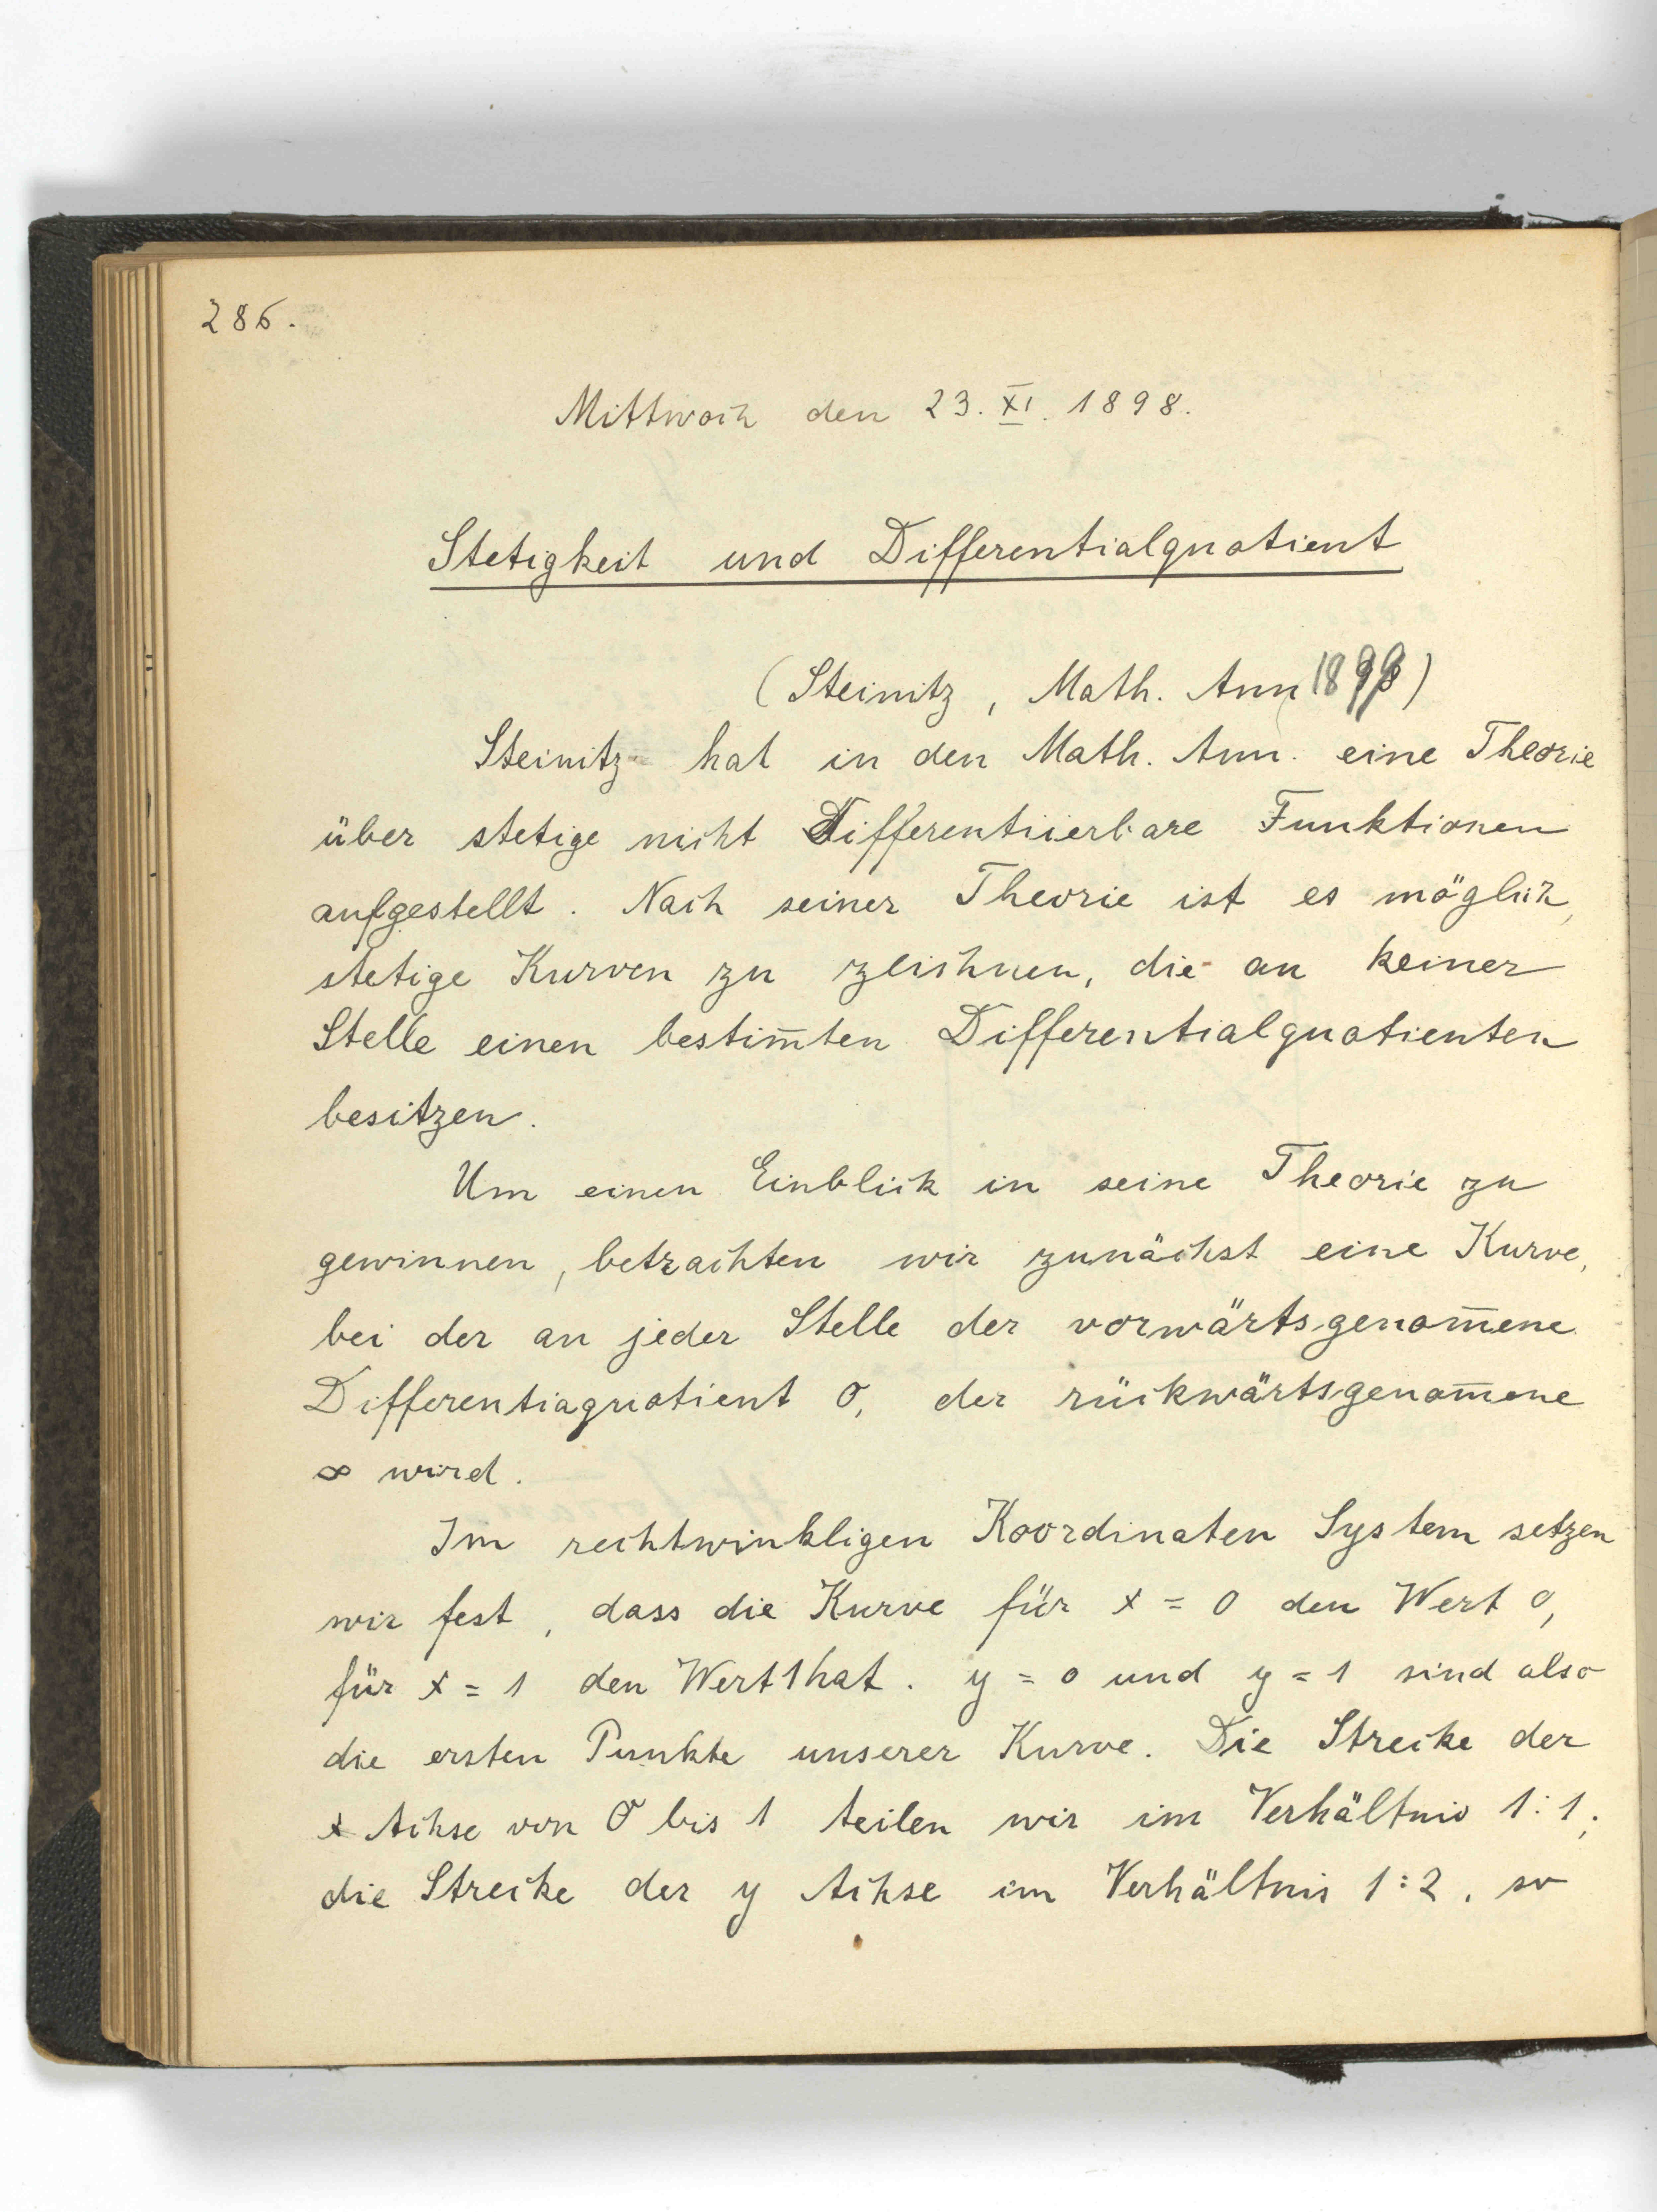 286.
Mittwoch den 23. XI. 1898.
Stetigkeit und Differentialquotient
(Steinitz, Math. Ann 1899)
Steinitz hat in den Math. Ann. eine Theorie
über stetige nicht Differentiierbare Funktionen
aufgestellt. Nach seiner Theorie ist es möglich,
stetige Kurven zu zeichnen, die an keiner
Stelle einen bestim̅ten Differentialquotienten
besitzen.
Um einen Einblick in seine Theorie zu
gewinnen, betrachten wir zunächst eine Kurve,
bei der an jeder Stelle der vorwärtsgenom̅ene
Differentiaquotient 0, der rückwärtsgenom̅ene
∞ wird.
Im rechtwinkligen Koordinaten System setzen
wir fest, dass die Kurve für x = 0 den Wert 0,
für x = 1 den Wert 1 hat. y = 0 und y = 1 sind also
die ersten Punkte unserer Kurve. Die Strecke der
x Achse von 0 bis 1 teilen wir im Verhältnis 1:1;
die Strecke der y Achse im Verhältnis 1:2, so